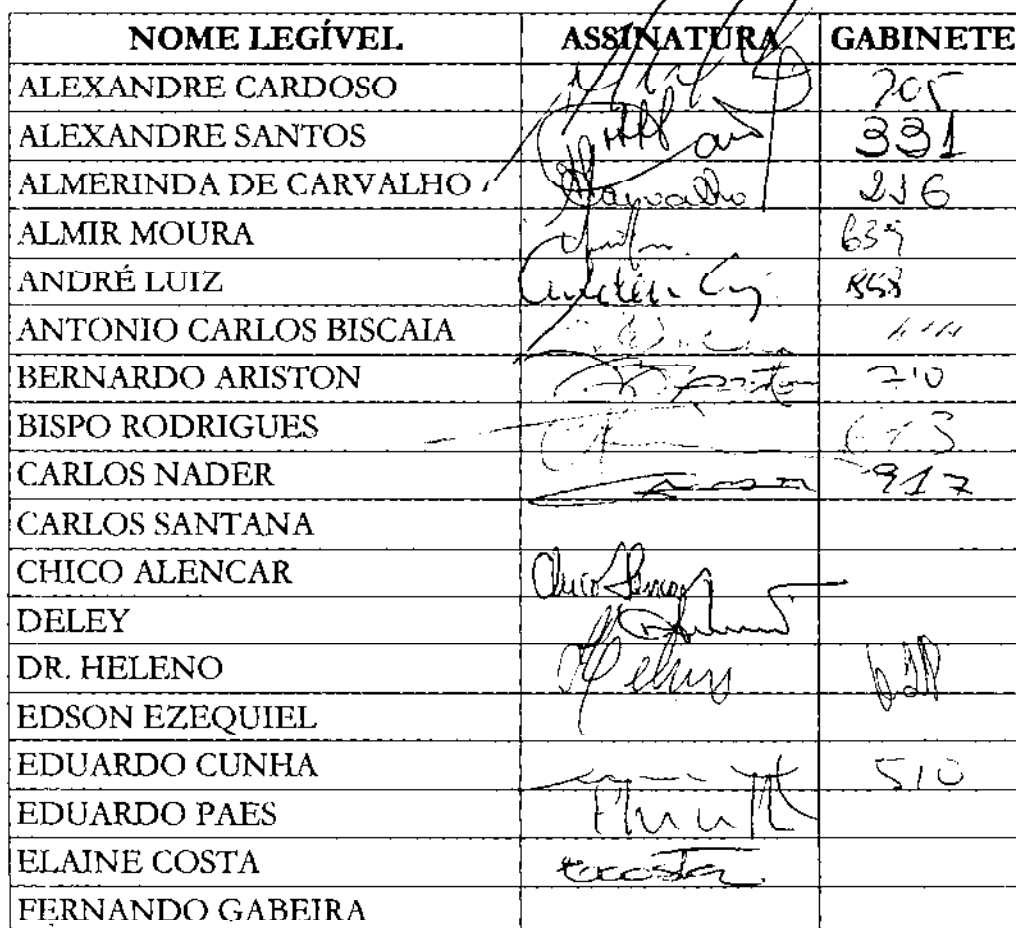 NOME LEGÍVEL ASSINATURA GABINETE
ALEXANDRE CARDOSO 705
ALEXANDRE SANTOS 331
ALMERINDA DE CARVALHO Carvalho 236
ALMIR MOURA 639
ANDRÉ LUIZ 858
ANTONIO CARLOS BISCAIA
BERNARDO ARISTON Ariston 710
BISPO RODRIGUES
CARLOS NADER 917
CARLOS SANTANA
CHICO ALENCAR Chico Alencar
DELEY
DR. HELENO Heleno
EDSON EZEQUIEL
EDUARDO CUNHA 510
EDUARDO PAES
ELAINE COSTA ecosta
FERNANDO GABEIRA